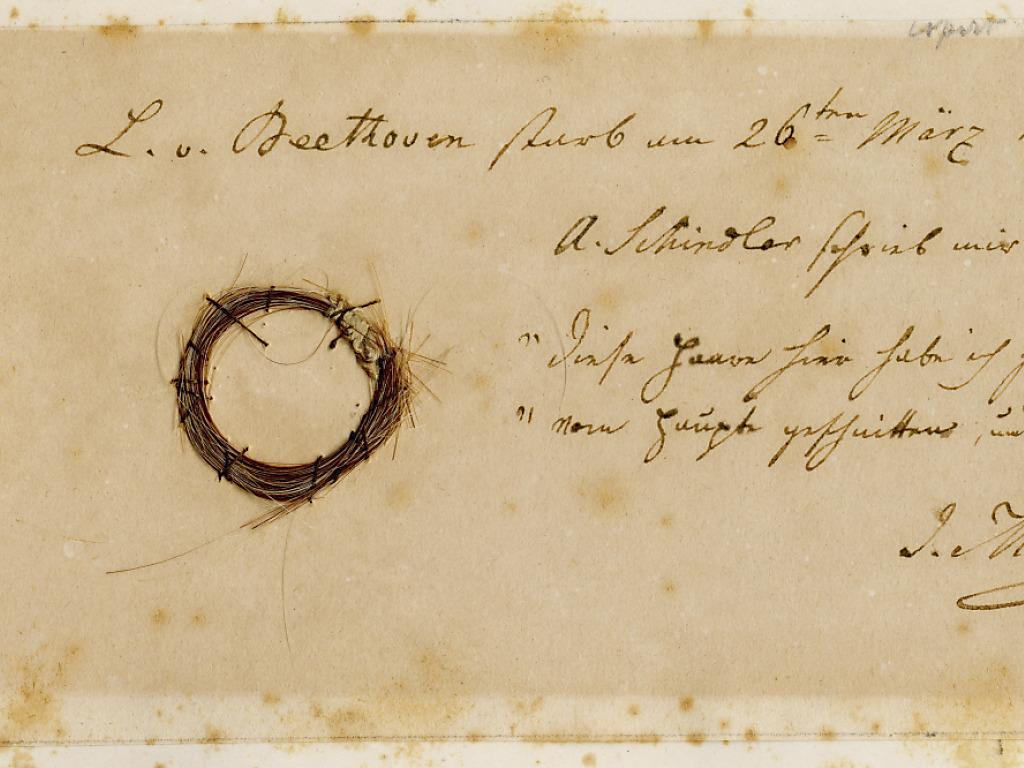 L. v. Beethoven starb am 26ten März
A. Schindler schrieb mir
" Diese Haare hier habe ich
" vom Haupte geschnitten, und
J. M